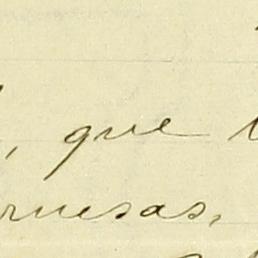 , que
ruesas,